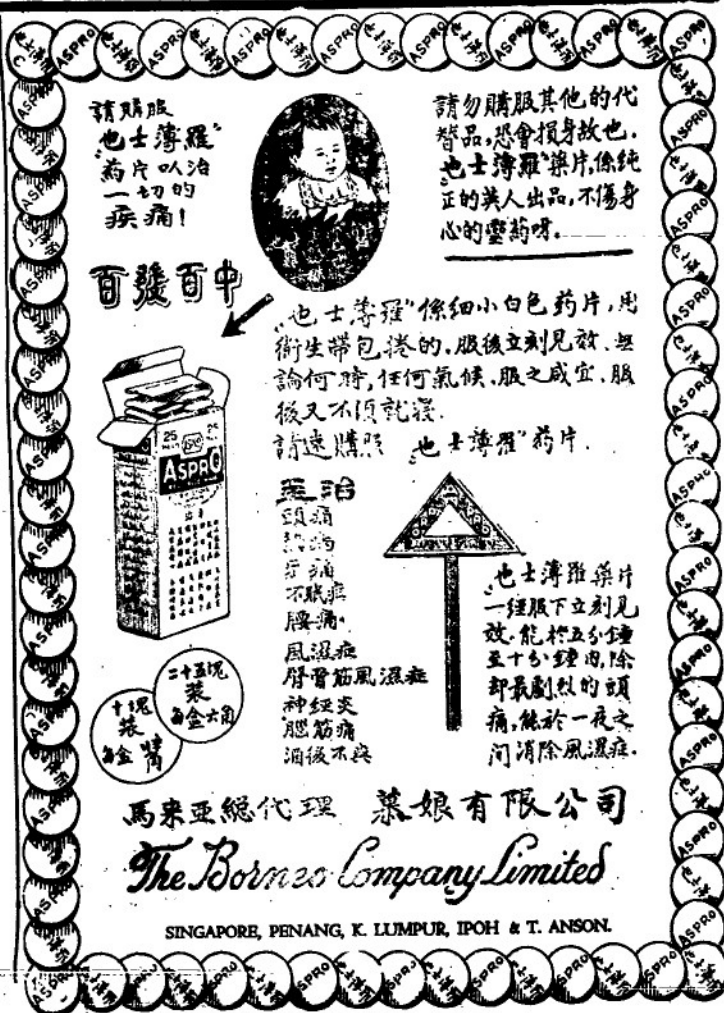 請購服
"也士薄羅"
药片以治
一切的
疾痛!
請勿購服其他的代
替品,恐會損身故也.
"也士薄羅"藥片,係純
正的英人出品,不傷身
心的靈葯呀.
百發百中
"也士薄羅"係細小白色葯片,用
衛生帶包捲的.服後立刻見效.無
論何時,任何氣候.服之咸宜.服
後又不須就寢.
請速購服 "也士薄羅"葯片.
25 25
ASPRO
主治
頭痛
熱病
牙痛
不眠症
腰痛
風濕症
腎骨筋風濕症
神經炎
腦筋痛
酒後不安
"也士薄羅藥片
一經服下立刻見
效.能於五分鐘
至十分鐘內,除
却最劇烈的頭
痛,能於一夜之
间消除風濕症.
二十五塊
装
每盒六角
十塊
装
每盒
馬来亚總代理 慕娘有限公司
The Borneo Company Limited
SINGAPORE, PENANG, K. LUMPUR, IPOH & T. ANSON.